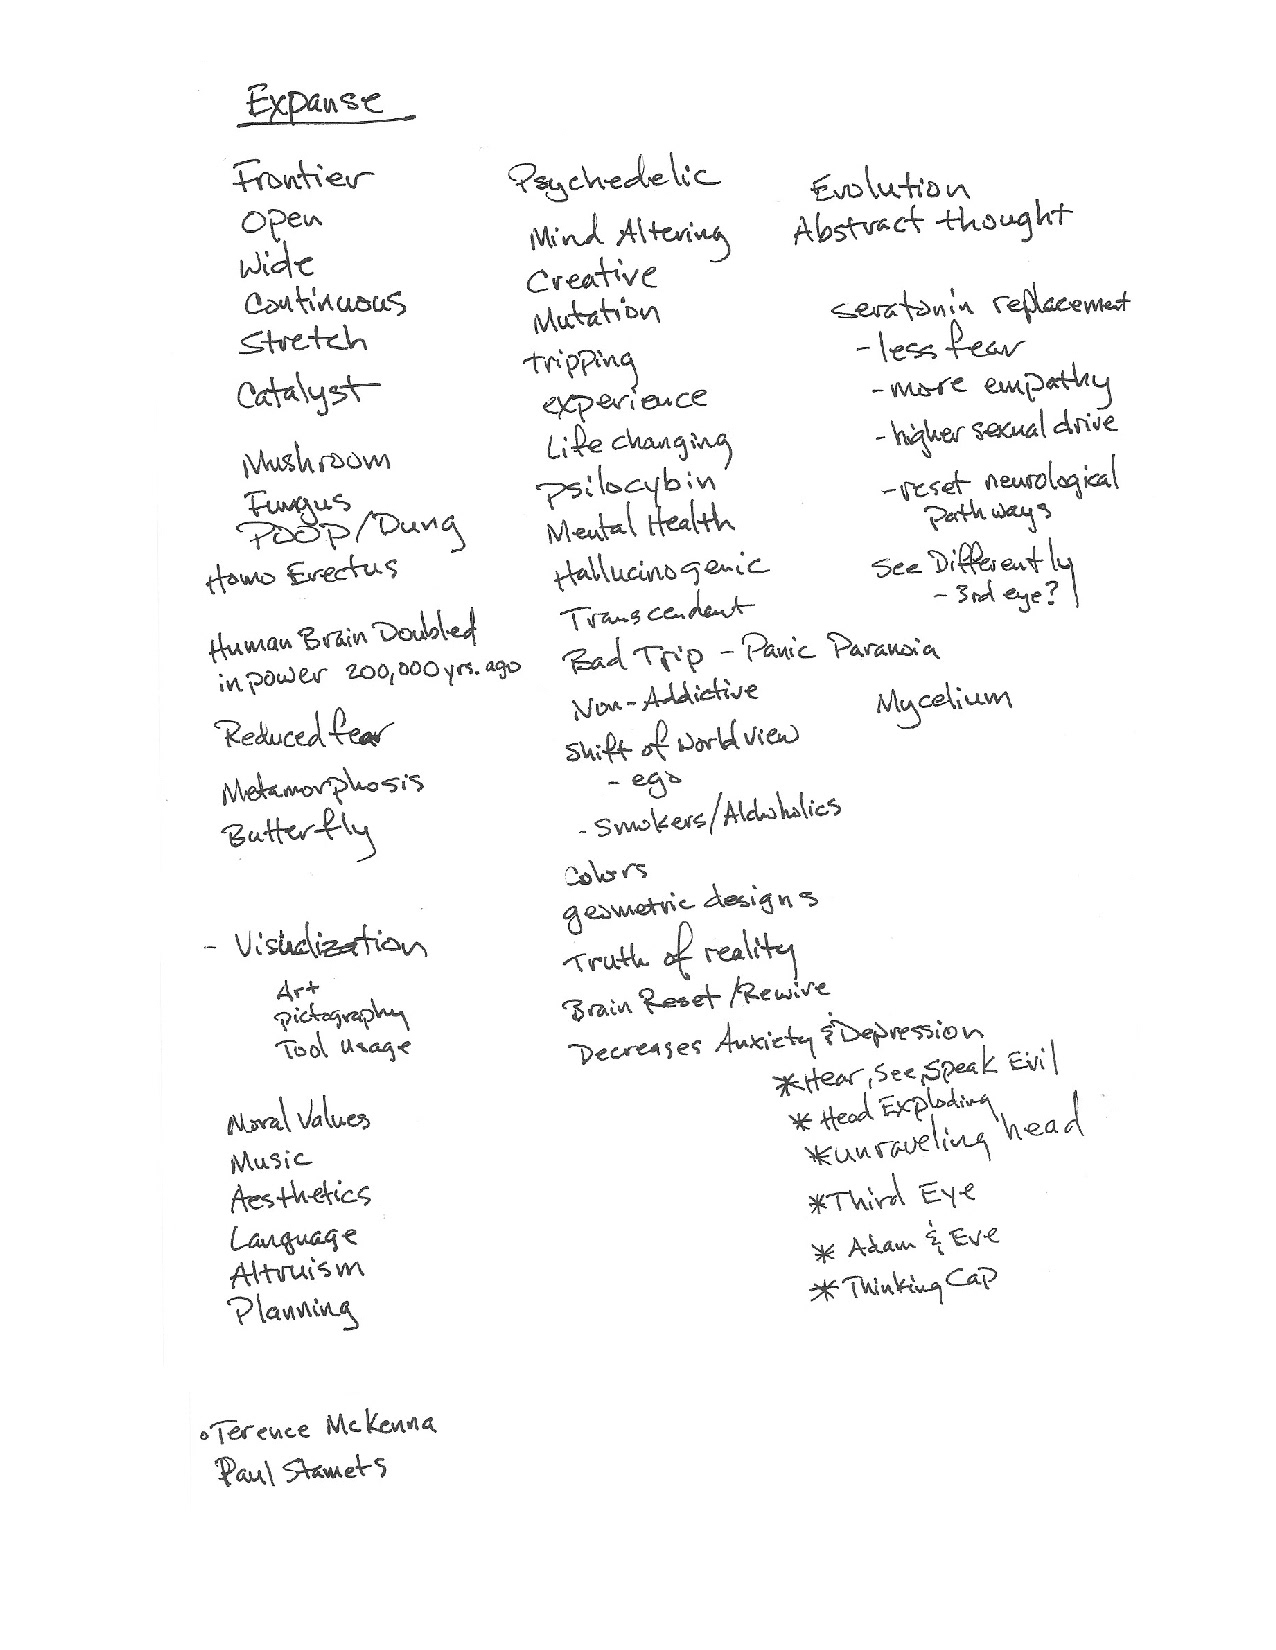 Expanse
Frontier
Open
Wide
Continuous
Stretch
Catalyst
Mushroom
Fungus
Poop/Dung
Homo Erectus
Human Brain Doubled
in power 200,000 yrs. ago
Reduced fear
Metamorphosis
Butterfly
- Visualization
Art
Pictography
Tool Usage
Moral Values
Music
Aesthetics
Language
Altruism
Planning
Terence McKenna
Paul Stamets
Psychedelic
Mind Altering
Creative
Mutation
tripping
experience
Life changing
Psilocybin
Mental Health
Hallucinogenic
Transcendent
Bad Trip - Panic Paranoia
Non-Addictive
Shift of World view
- ego
- Smokers/Alcoholics
Colors
geometric designs
Truth of reality
Brain Reset/Rewire
Decreases Anxiety & Depression
Evolution
Abstract thought
seratonin replacement
-less fear
-more empathy
-higher sexual drive
-reset neurological
pathways
See Differently
- 3rd eye?
Mycelium
*Hear, See, Speak Evil
*Head Exploding
*unraveling head
*Third Eye
* Adam & Eve
*Thinking Cap